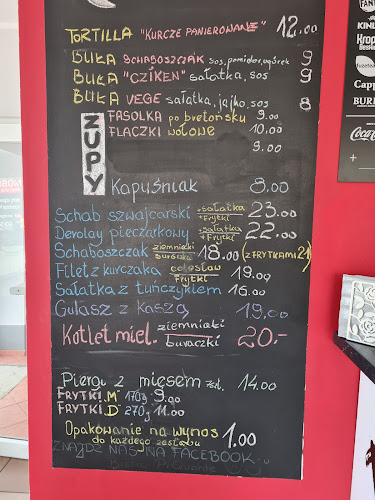 TORTILLA "KURCZE PANIEROWANE" 12.00
BUŁA SCHABOSZCZAK sos, pomidor, ogórek 9
BUŁA "CZIKEN" sałatka, sos 9
BUŁA VEGE sałatka, jajko, sos 8
ZUPY
FASOLKA po bretońsku 9.00
FLACZKI wołowe 10.00
9.00
Kapuśniak 8.00
Schab szwajcarski +sałatka +frytki 23.00
Devolay pieczarkowy +sałatka +frytki 22.00
Schaboszczak ziemniaki buraczki 18.00 (z FRYTKAMI 21)
Filet z kurczaka colesław frytki 19.00
Sałatka z tuńczykiem 16.00
Gulasz z kaszą 19.00
Kotlet miel. ziemniaki buraczki 20.-
Pierogi z mięsem 7szt. 14.00
FRYTKI "M" 170g 9.90
FRYTKI "D" 270g 11.00
Opakowanie na wynos 1.00
do każdego zestawu
ZNAJDŹ NAS NA FACEBOOK
FAN
KINL
Fuzetea
Capp
BUR
Coca